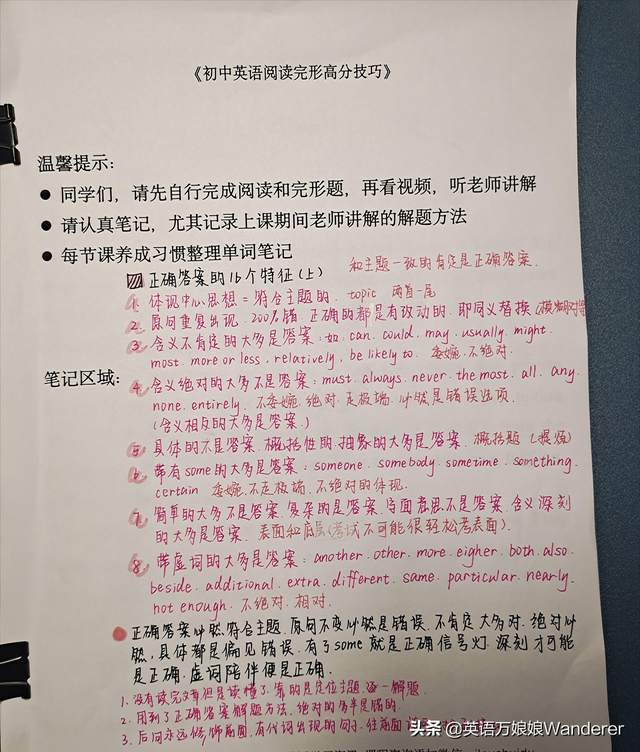 《初中英语阅读完形高分技巧》
温馨提示:
● 同学们，请先自行完成阅读和完形题，再看视频，听老师讲解
● 请认真笔记，尤其记录上课期间老师讲解的解题方法
● 每节课养成习惯整理单词笔记
和主题一致的肯定是正确答案.
正确答案的16个特征(上)
1. 体现中心思想=符合主题的. topic 两首一尾
2. 原词重复出现. 200%错. 正确的都是有改动的. 即同义替换
3. 含义不肯定的大多是答案: 如. can. could. may. usually. might.
most. more or less, relatively, be likely to. 委婉. 不绝对.
笔记区域:
4. 含义绝对的大多不是答案: must. always. never. the most. all. any.
none. entirely. 不委婉. 绝对. 走极端. 必然是错误选项.
(含义相反的大多是答案.)
5. 具体的不是答案. 概括性的. 抽象的大多是答案. 概括题 (提炼)
6. 带有some的大多是答案: someone. somebody. sometime. something.
certain 委婉. 不走极端. 不绝对的体现.
7. 简单的大多不是答案. 复杂的是答案. 字面意思不是答案. 含义深刻
的大多是答案. 表面和底层(考试不可能很轻松考表面).
8. 带虚词的大多是答案: another. other. more. eigher. both. also.
beside. additional. extra. different. same. particular. nearly.
not enough. 不绝对. 相对.
正确答案必然符合主题. 原词不变必然是错误. 不肯定大多对. 绝对必
然. 具体都是偏见错误. 有了some就是正确信号灯. 深刻才可能
是正确. 虚词陪伴便是正确.
1. 没有读完文章但是读懂了. 靠的是定位主题. 逐一解题.
2. 用到了正确答案解题方法. 绝对的多半是错的.
3. 后词永远修饰前面. 有代词出现的句子. 往前面
头条 @英语万娘娘Wanderer